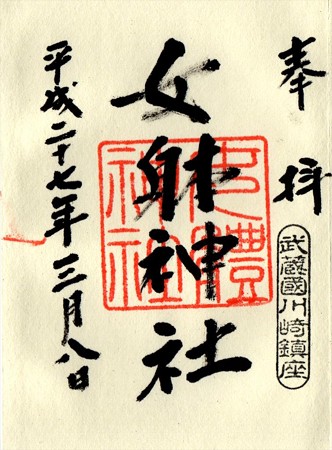 奉拝
武蔵國川崎鎮座
女躰神社
女體神社
平成二十七年三月八日